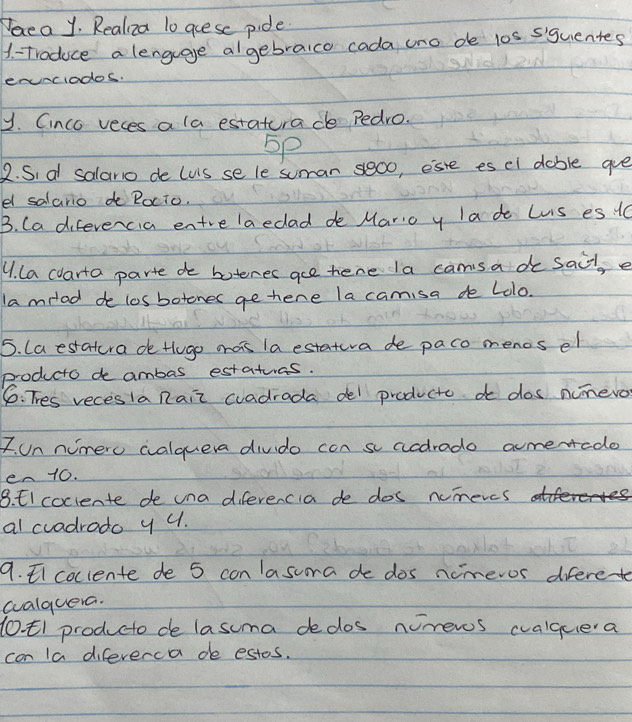 Tarea 1. Realiza lo quese pide.
1.-Traduce a lenguaje algebraico cada uno de los siguientes
enunciados.
1. Cinco veces a la estatura de Pedro.
5p
2. Si al salario de Luis se le suman $900, este es el doble que
el salario de Rocio.
3. La diferencia entre la edad de Mario y la de Luis es 10
4. La cuarta parte de botones que tiene la camisa de Saúl, e
la mitad de los botones qe tiene la camisa de Lalo.
5. La estatura de Hugo más la estatura de paco menos el
producto de ambas estaturas.
6. Tres veces la Raiz cuadrada del producto de dos números
7. Un número cualquiera divido con su cuadrado aumentado
en 10.
8. El cociente de una diferencia de dos números diferentes
al cuadrado y 4.
9. El cociente de 5 con la suma de dos números diferente
cualquiera.
10. El producto de la suma de dos números cualquiera
con la diferencia de estos.